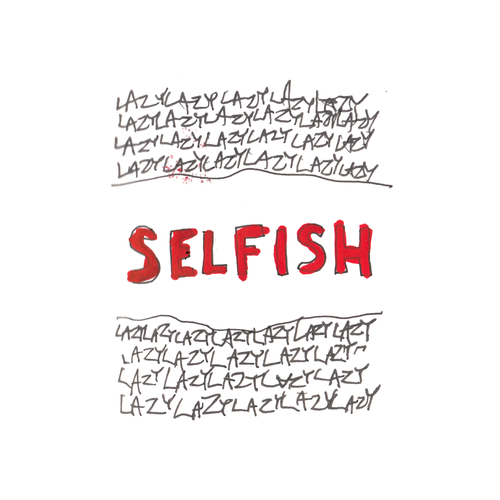 LAZY LAZY LAZY LAZY LAZY
LAZY LAZY LAZY LAZY LAZY LAZY
LAZY LAZY LAZY LAZY LAZY LAZY
LAZY LAZY LAZY LAZY LAZY LAZY
SELFISH
LAZY LAZY LAZY LAZY LAZY LAZY LAZY
LAZY LAZY LAZY LAZY LAZY
LAZY LAZY LAZY LAZY LAZY
LAZY LAZY LAZY LAZY LAZY